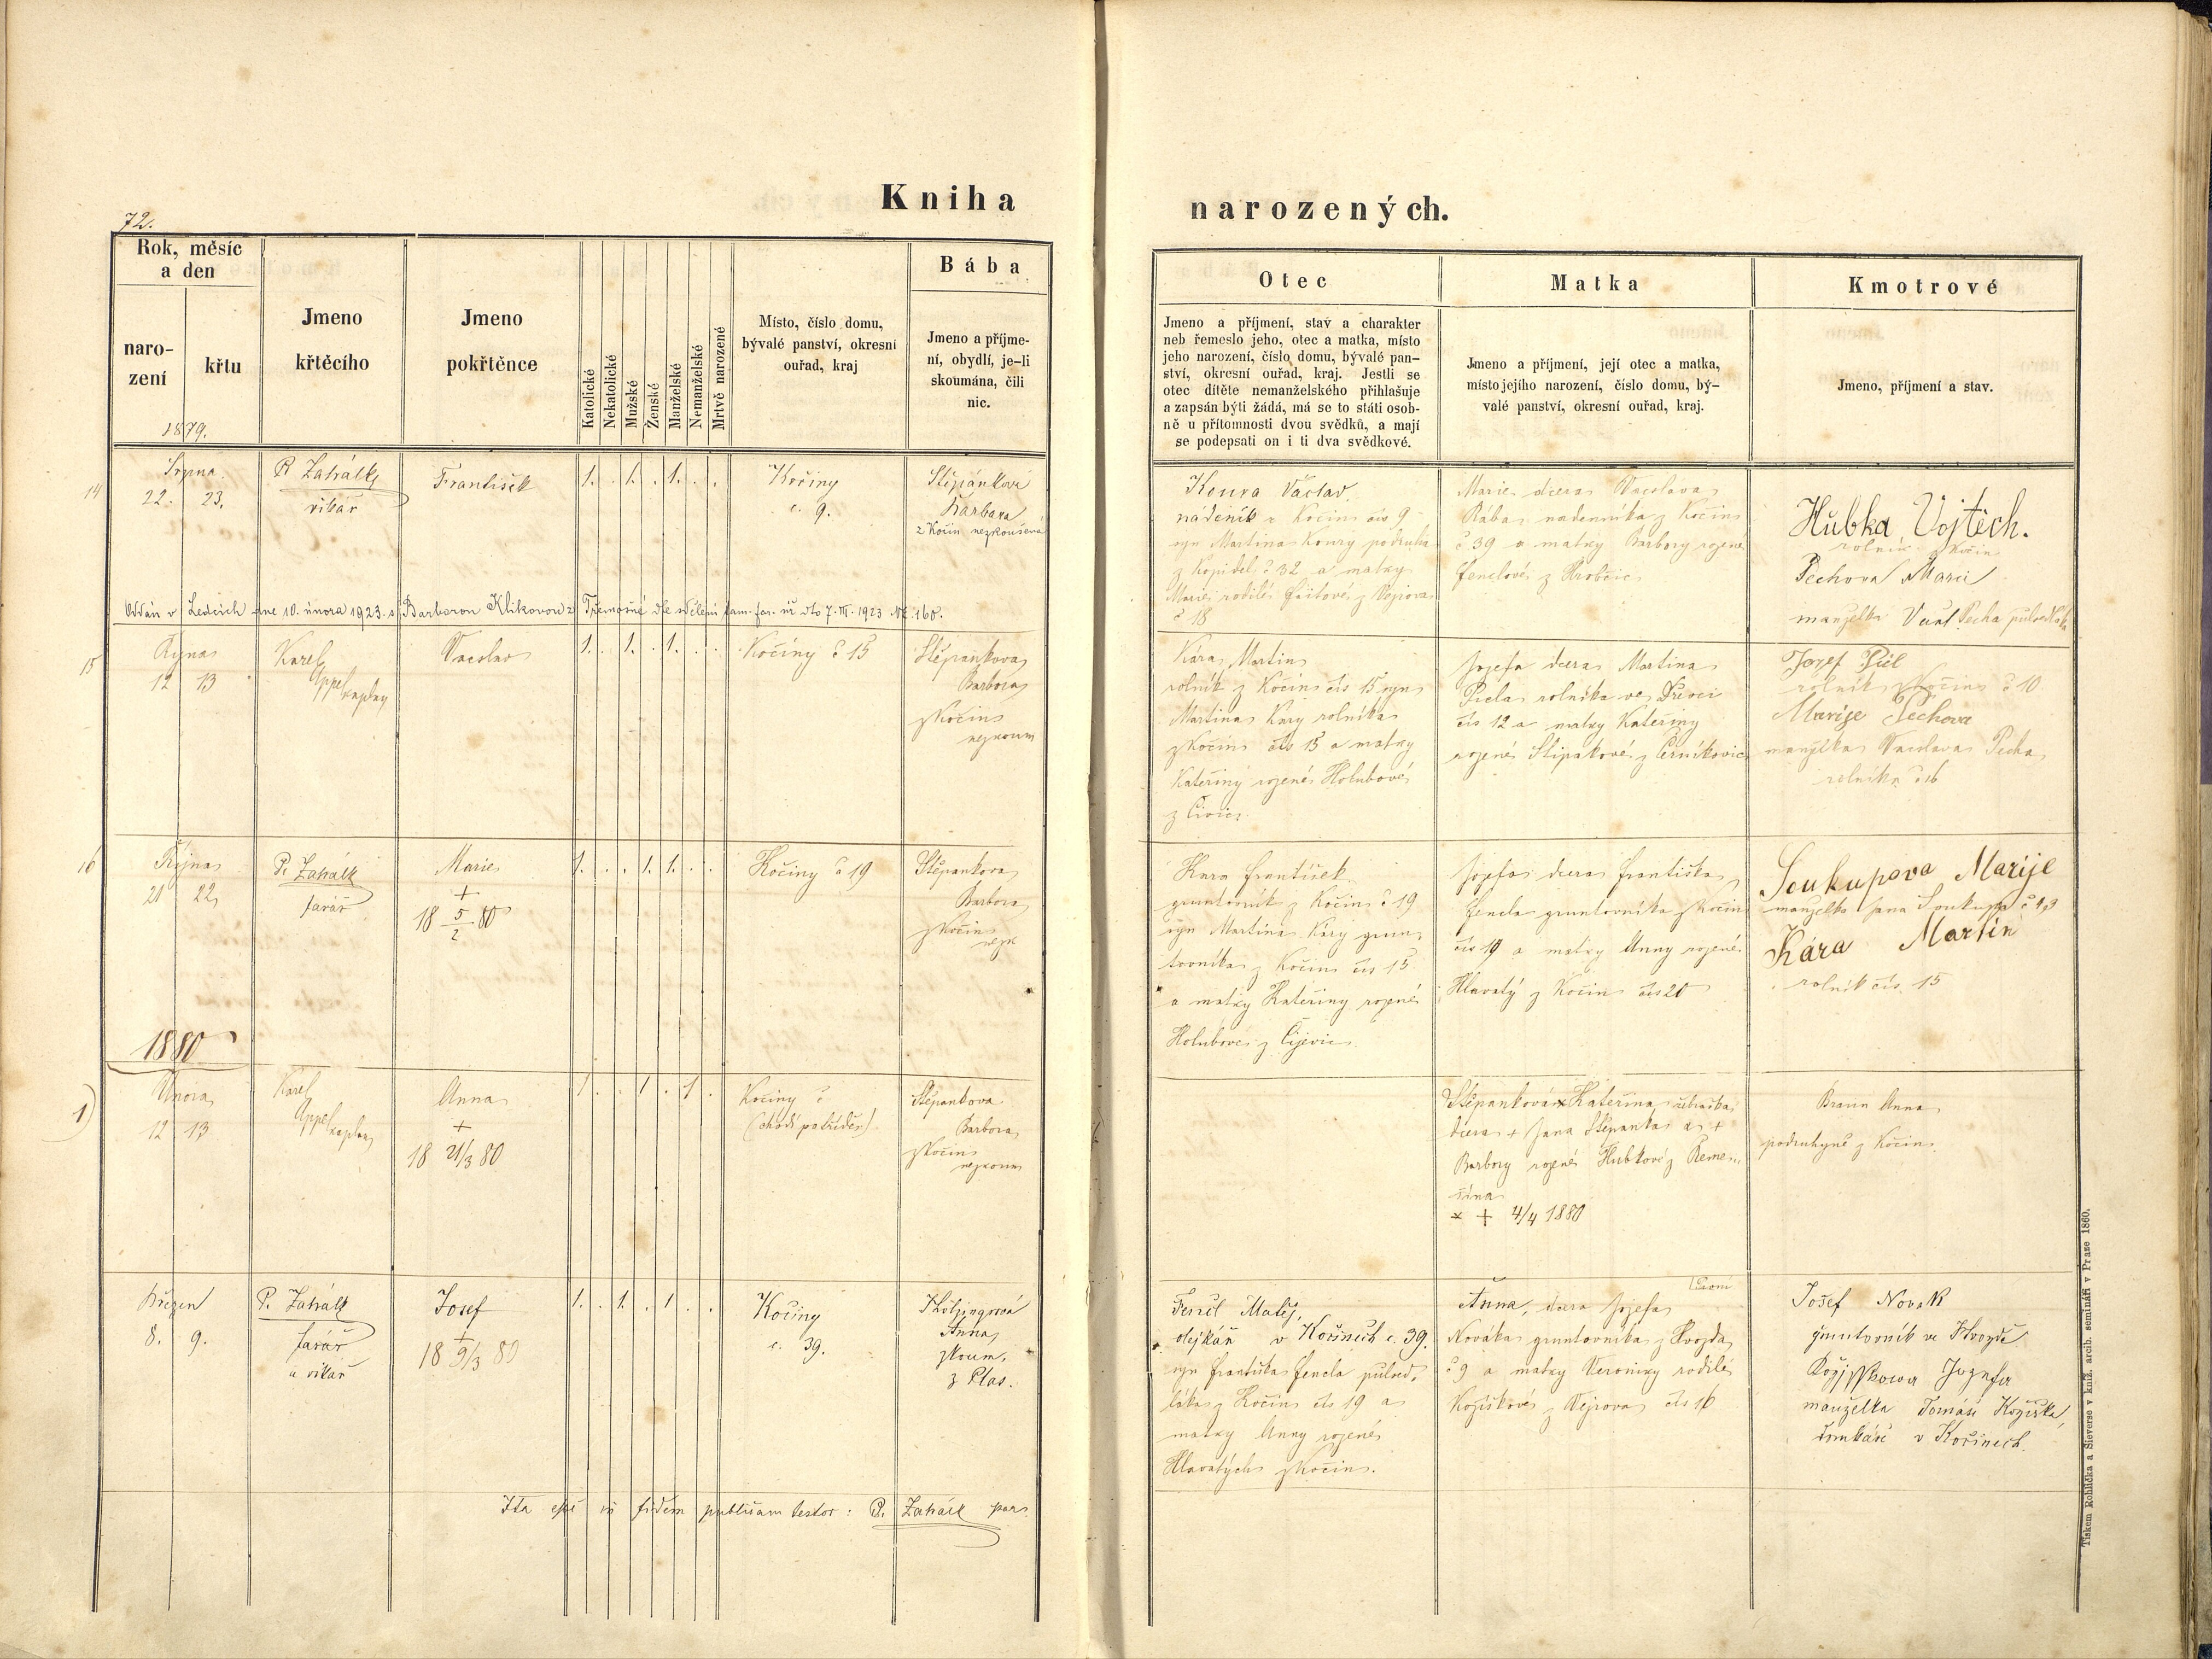 72.
Kniha
narozených.
Rok, měsíc
a den
naro-
zení
křtu
1879.
Jmeno
křtěcího
Jmeno
pokřtěnce
Katolické
Nekatolické
Mužské
Ženské
Manželské
Nemanželské
Mrtvě narozené
Místo, číslo domu,
bývalé panství, okresní
ouřad, kraj
Bába
Jmeno a příjme-
ní, obydlí, je-li
skoumána, čili
nic.
Otec
Jmeno a příjmení, stav a charakter
neb řemeslo jeho, otec a matka, místo
jeho narození, číslo domu, bývalé pan-
ství, okresní ouřad, kraj. Jestli se
otec dítěte nemanželského přihlašuje
a zapsán býti žádá, má se to státi osob-
ně u přítomnosti dvou svědků, a mají
se podepsati on i ti dva svědkové.
Matka
Jmeno a příjmení, její otec a matka,
místo jejího narození, číslo domu, bý-
valé panství, okresní ouřad, kraj.
Kmotrové
Jmeno, příjmení a stav.
14
Srpna
22. 23.
P. Zahálk
vikář
František
1. . 1. . 1. . .
Kočiny
č. 9.
Štěpánková
Barbara
z Kočín nezkoušená
Koura Václav.
nádeník z Kočin čís 9
syn Martina Koury podruha
z Kopidel č 32 a matky
Marie rodilé z Vejrova
č 18
Marie dcera Vácslava
Rába nadenníka z Kočin
č 39 a matky Barbory rojené
Fenclové z Hrobčic
Hubka Vojtěch.
rolník z Kočin
Pechova Marie
manželka Pecha půlsedláka
Oddán v Ledcích dne 10. února 1923 s Barborou Klikovou z Třemošné dle sdělení tam. far. úř. dto 7. III. 1923 Nr. 160.
15
Října
12 13
Karel
Appel kaplan
Vácslav
1. . 1. . 1. . .
Kočiny č 15
Štěpankova
Barbora
z Kočin
nezkoum
Kára Martin
rolník z Kočin čís 15 syn
Martina Káry rolníka
z Kočin čís 15 a matky
Kateřiny rojené Holubové
z
Jozefa dcera Martina
Picla rolníka ve Dřevci
čís 12 a matky Kateřiny
rojené Štipákové z Černíkovic
Jozef Picl
rolník z Kočin č 10
Marije Pechova
manželka Vácslava Pecha
rolníka č 16
16
Října
21 22
P. Zahálk
farář
Marie
+
18 5/2 80
1. . . 1. 1. . .
Kočiny č 19
Štěpankova
Barbora
z Kočin
nezk
Kara František
gruntovník z Kočin č 19
syn Martina Káry grun-
tovníka z Kočin čís 15
a matky Kateřiny rojené
Holubové z
Jozefa dcera Františka
Fencla gruntovníka z Kočin
čís 19 a matky Anny rojené
Hlavatý z Kočin čís 20
Soukupova Marije
manželka Jana Soukupa č 43
Kára Martin
rolník čís. 15
1880
1)
Února
12 13
Karel
Appel kaplan
Anna
+
18 21/3 80
1 . . 1 . 1 .
Kočiny č
(chodí po střídě)
Štěpankova
Barbora
z Kočin
nezkoum
Štěpanková × Kateřina žebračka
dcera + Jana Štěpanka a +
Barbory rojené Hubkové z Reme-
šína
× + 4/4 1880
Braun Anna
podruhyně z Kočin.
Březen
8. 9.
P. Zahálk
farář
a vikář
Josef
+
18 9/3 80
1. . 1. . 1 . .
Kočiny
č. 39.
Anna
zkoum.
z Plas.
Fencl Matěj,
olejkář v Kočinech č. 39.
syn Františka Fencla půlsed-
láka z Kočin čís 19 a
matky Anny rojené
Hlavatých z Kočin.
Anna, dcera Jozefa
Nováka gruntovníka z Hvozda
č 9 a matky Veroniky rodilé
Kožíškové z Vejrova čís 16
Josef Novak
gruntovník ve Hvozdě
Jozefa
manželka Tomáše Kožíška,
v Kočinech.
Ita esse in fidem publicam testor: P. Zahálk par.
Tiskem Rohlíčka a Sieverse v kníž. arcib. semináři v Praze 1860.